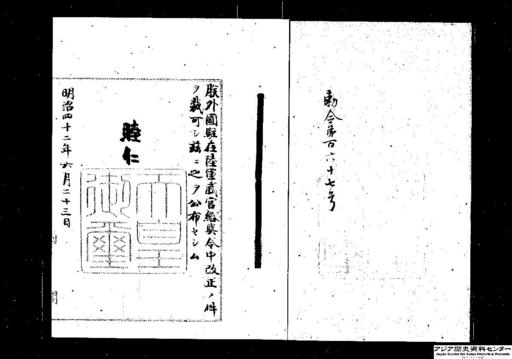 勅令第百六十七号
朕外國駐在陸軍武官給與令中改正ノ件
ヲ裁可シ茲ニ之ヲ公布セシム
睦仁
天皇御璽
明治四十二年六月二十三日
アジア歴史資料センター
Japan Center for Asian Historical Records